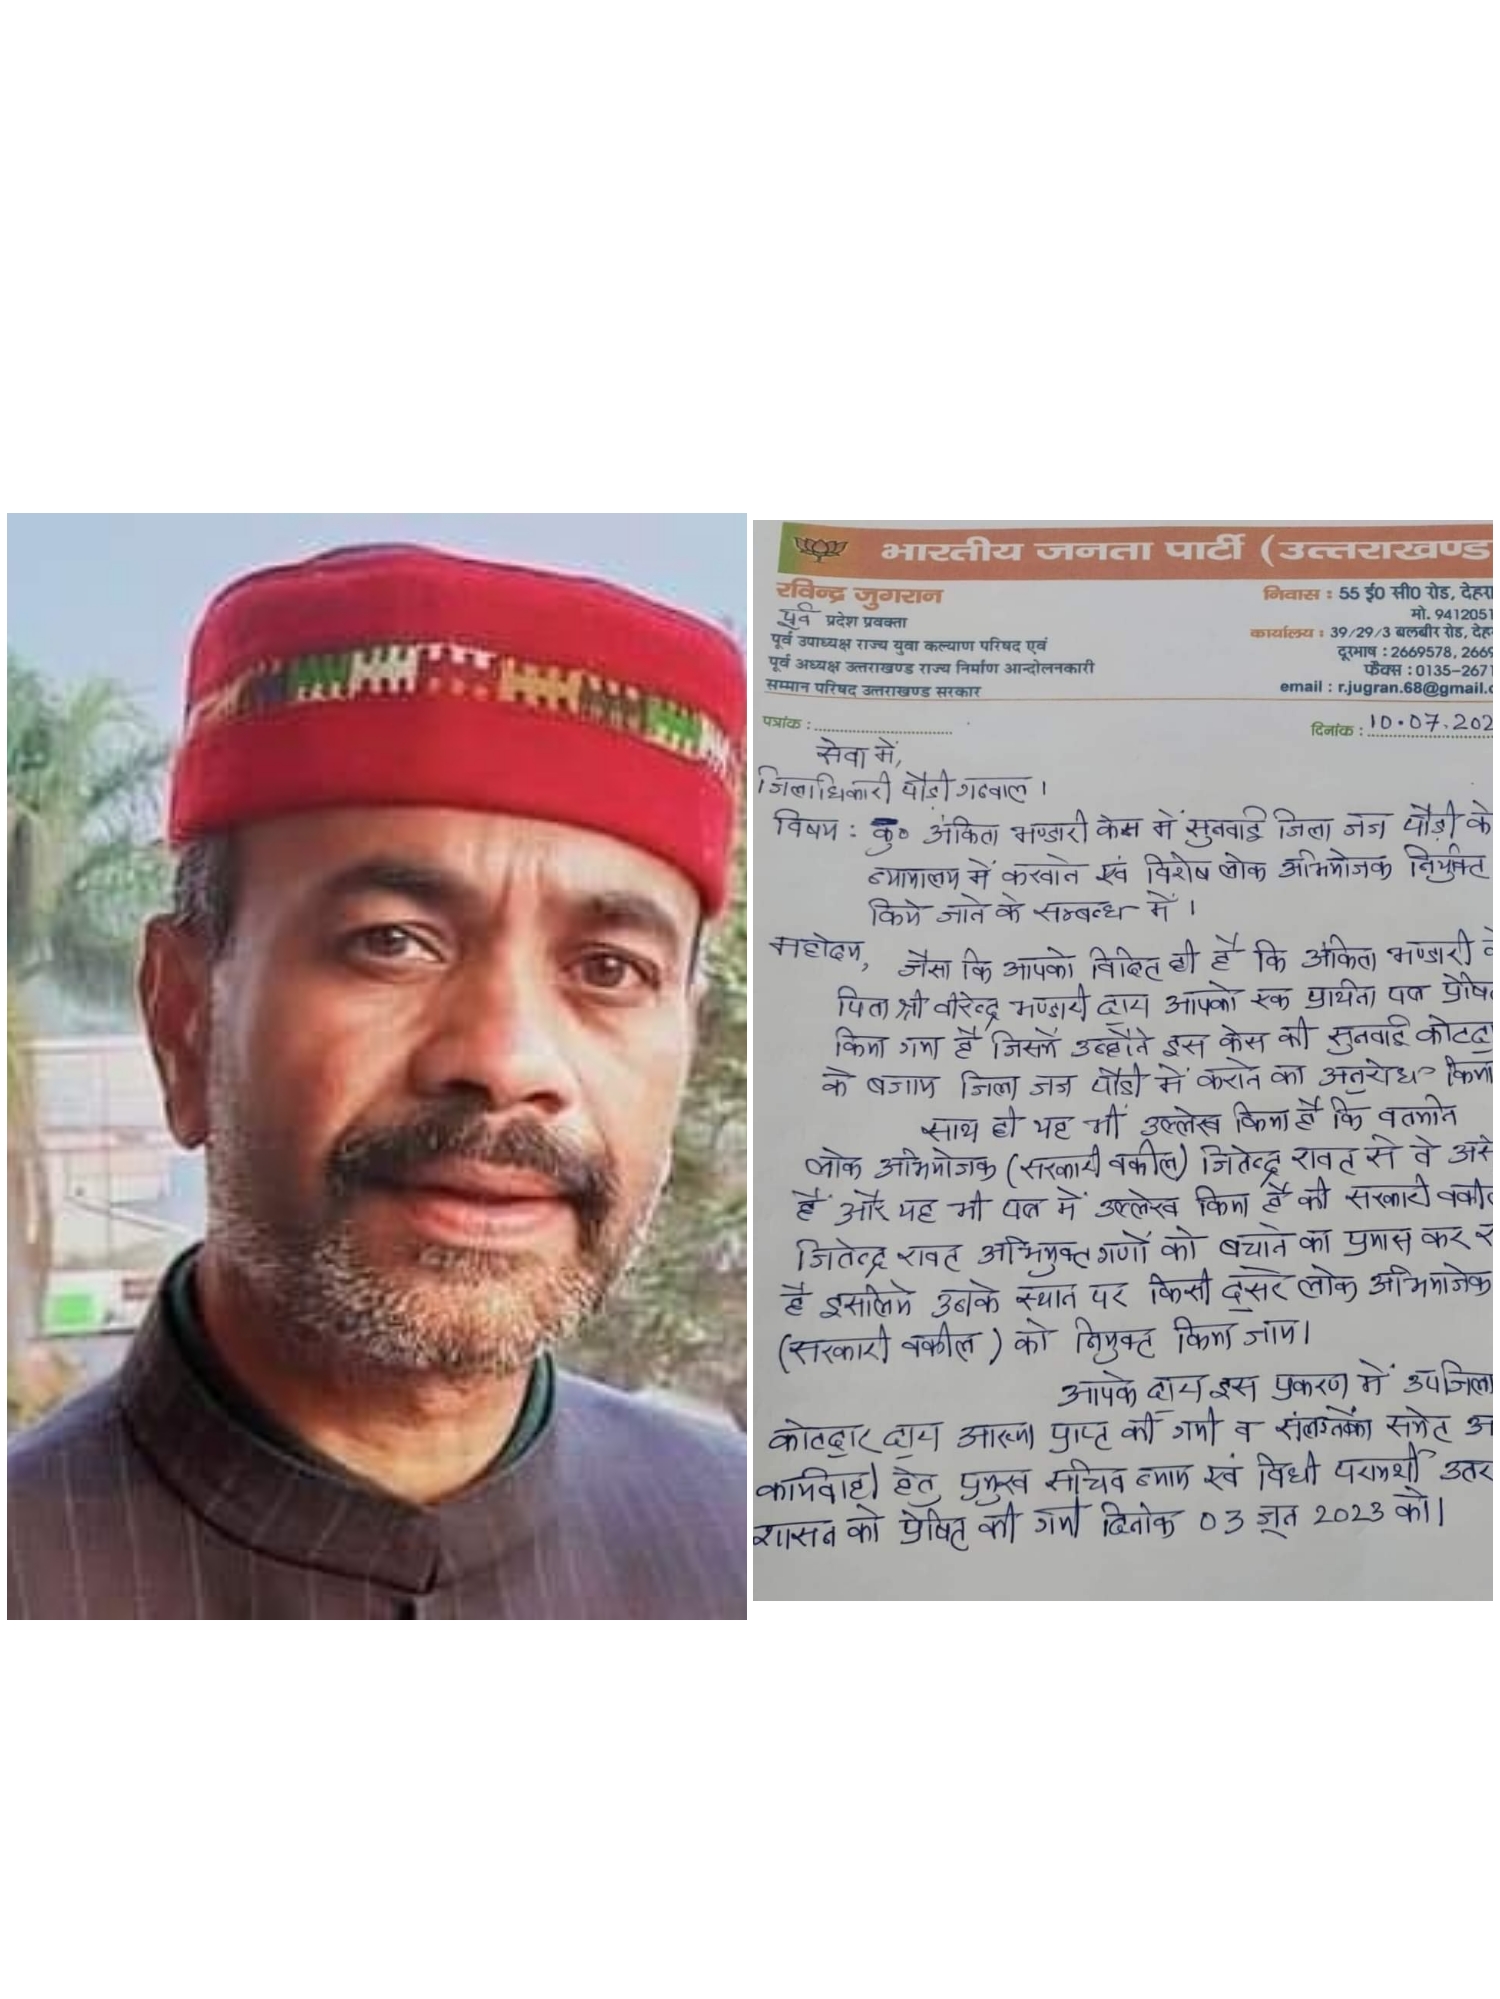 भारतीय जनता पार्टी (उत्तराखण्ड
रविन्द्र जुगरान
पूर्व प्रदेश प्रवक्ता
पूर्व उपाध्यक्ष राज्य युवा कल्याण परिषद एवं
पूर्व अध्यक्ष उत्तराखण्ड राज्य निर्माण आन्दोलनकारी
सम्मान परिषद उत्तराखण्ड सरकार
निवास : 55 ई0 सी0 रोड, देहरा
मो. 9412051
कार्यालय : 39/29/3 बलबीर रोड, देह
दूरभाष : 2669578, 2669
फैक्स : 0135-267
email : r.jugran.68@gmail.
पत्रांक :
दिनांक : 10.07.202
सेवा में,
जिलाधिकारी पौड़ी गढवाल ।
विषय : कु० अंकिता भण्डारी केस में सुनवाई जिला जज पौड़ी के
न्यायालय में करवाने एवं विशेष लोक अभियोजक नियुक्त
किये जाने के सम्बन्ध में ।
महोदय,
जैसा कि आपको विदित ही है कि अंकिता भण्डारी के
पिता श्री वीरेन्द्र भण्डारी द्वारा आपको एक प्रार्थना पत्र प्रेषित
किया गया है जिसमें उन्होंने इस केस की सुनवाई कोटद्वा
के बजाय जिला जज पौडी में कराने का अनुरोध किया
साथ ही यह भी उल्लेख किया है कि वर्तमान
लोक अभियोजक (सरकारी वकील) जितेन्द्र रावत से वे असं
हैं और यह भी पत्र में उल्लेख किया है की सरकारी वकील
जितेन्द्र रावत अभियुक्त गणों को बचाने का प्रयास कर र
है इसलिये उनके स्थान पर किसी दूसरे लोक अभियोजक
(सरकारी वकील ) को नियुक्त किया जाय।
आपके द्वारा इस प्रकरण में उपजिला
कोटद्वार द्वारा आख्या प्राप्त की गयी व संलग्नकों समेत अ
कार्यवाही हेतु प्रमुख सचिव न्याय एवं विधी परामर्शी उतर
शासन को प्रेषित की गयी दिनांक 03 जून 2023 को।